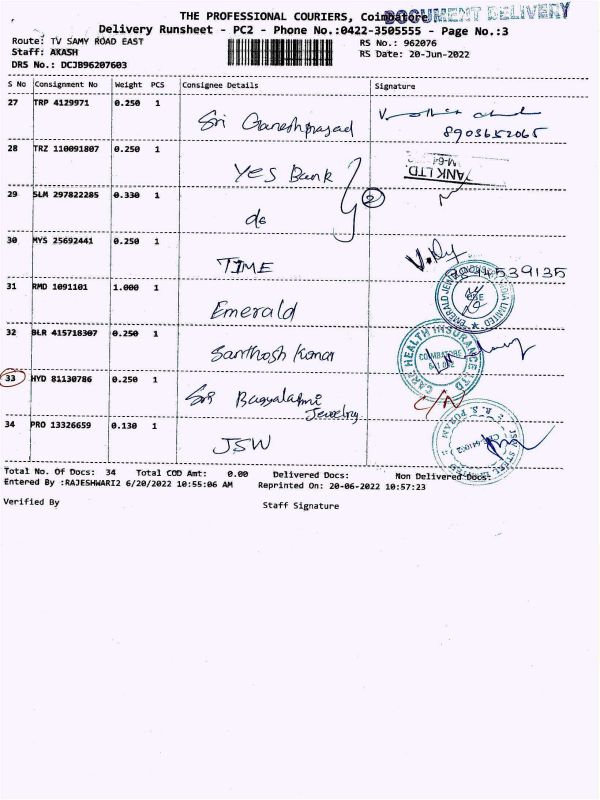 DOCUMENT DELIVERY
THE PROFESSIONAL COURIERS, Coimbatore
Delivery Runsheet - PC2 - Phone No.:0422-3505555 - Page No.:3
Route: TV SAMY ROAD EAST RS No.: 962076
Staff: AKASH RS Date: 20-Jun-2022
DRS No.: DCJB96207603
S No Consignment No Weight PCS Consignee Details Signature
27 TRP 4129971 0.250 1 Sri Ganeshprasad
8903652065
28 TRZ 110091807 0.250 1 Yes Bank
M-64
ANK LTD.
29 SLM 297822285 0.330 1 do 2
30 MYS 25692441 0.250 1 TIME
539135
31 RMD 1091101 1.000 1 Emerald
32 BLR 415718307 0.250 1 Santhosh Kumar
CARE HEALTH INSURANCE LTD
COIMBATORE
33 HYD 81130786 0.250 1 Sri Bagyalakmi
Jewelry
C/N
34 PRO 13326659 0.130 1 JSW
JSW STEEL LIMITED
R.S. PURAM
Total No. Of Docs: 34 Total COD Amt: 0.00 Delivered Docs: Non Delivered Docs:
Entered By :RAJESHWARI2 6/20/2022 10:55:06 AM Reprinted On: 20-06-2022 10:57:23
Verified By Staff Signature